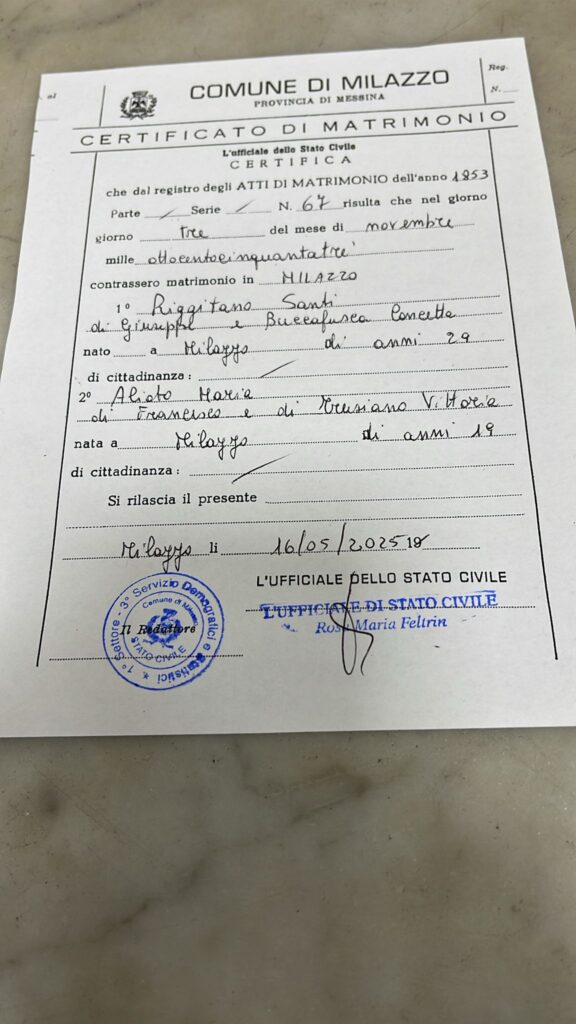 al
Reg.
N.
COMUNE DI MILAZZO
PROVINCIA DI MESSINA
CERTIFICATO DI MATRIMONIO
L'ufficiale dello Stato Civile
CERTIFICA
che dal registro degli ATTI DI MATRIMONIO dell'anno 1853
Parte / Serie / N. 67 risulta che nel giorno
giorno tre del mese di novembre
mille ottocentocinquantatre'
contrassero matrimonio in MILAZZO
1° Riggitano Santi
di Giuseppe e Buccafusca Concetta
nato a Milazzo di anni 29
di cittadinanza : /
2° Alioto Maria
di Francesco e di Trusiano Vittoria
nata a Milazzo di anni 19
di cittadinanza : /
Si rilascia il presente
Milazzo li 16/05/2025 19
L'UFFICIALE DELLO STATO CIVILE
L'UFFICIALE DI STATO CIVILE
Rosa Maria Feltrin
Il Redattore
1° Settore - 3° Servizio Demografici e Statistici
Comune di Milazzo
STATO CIVILE